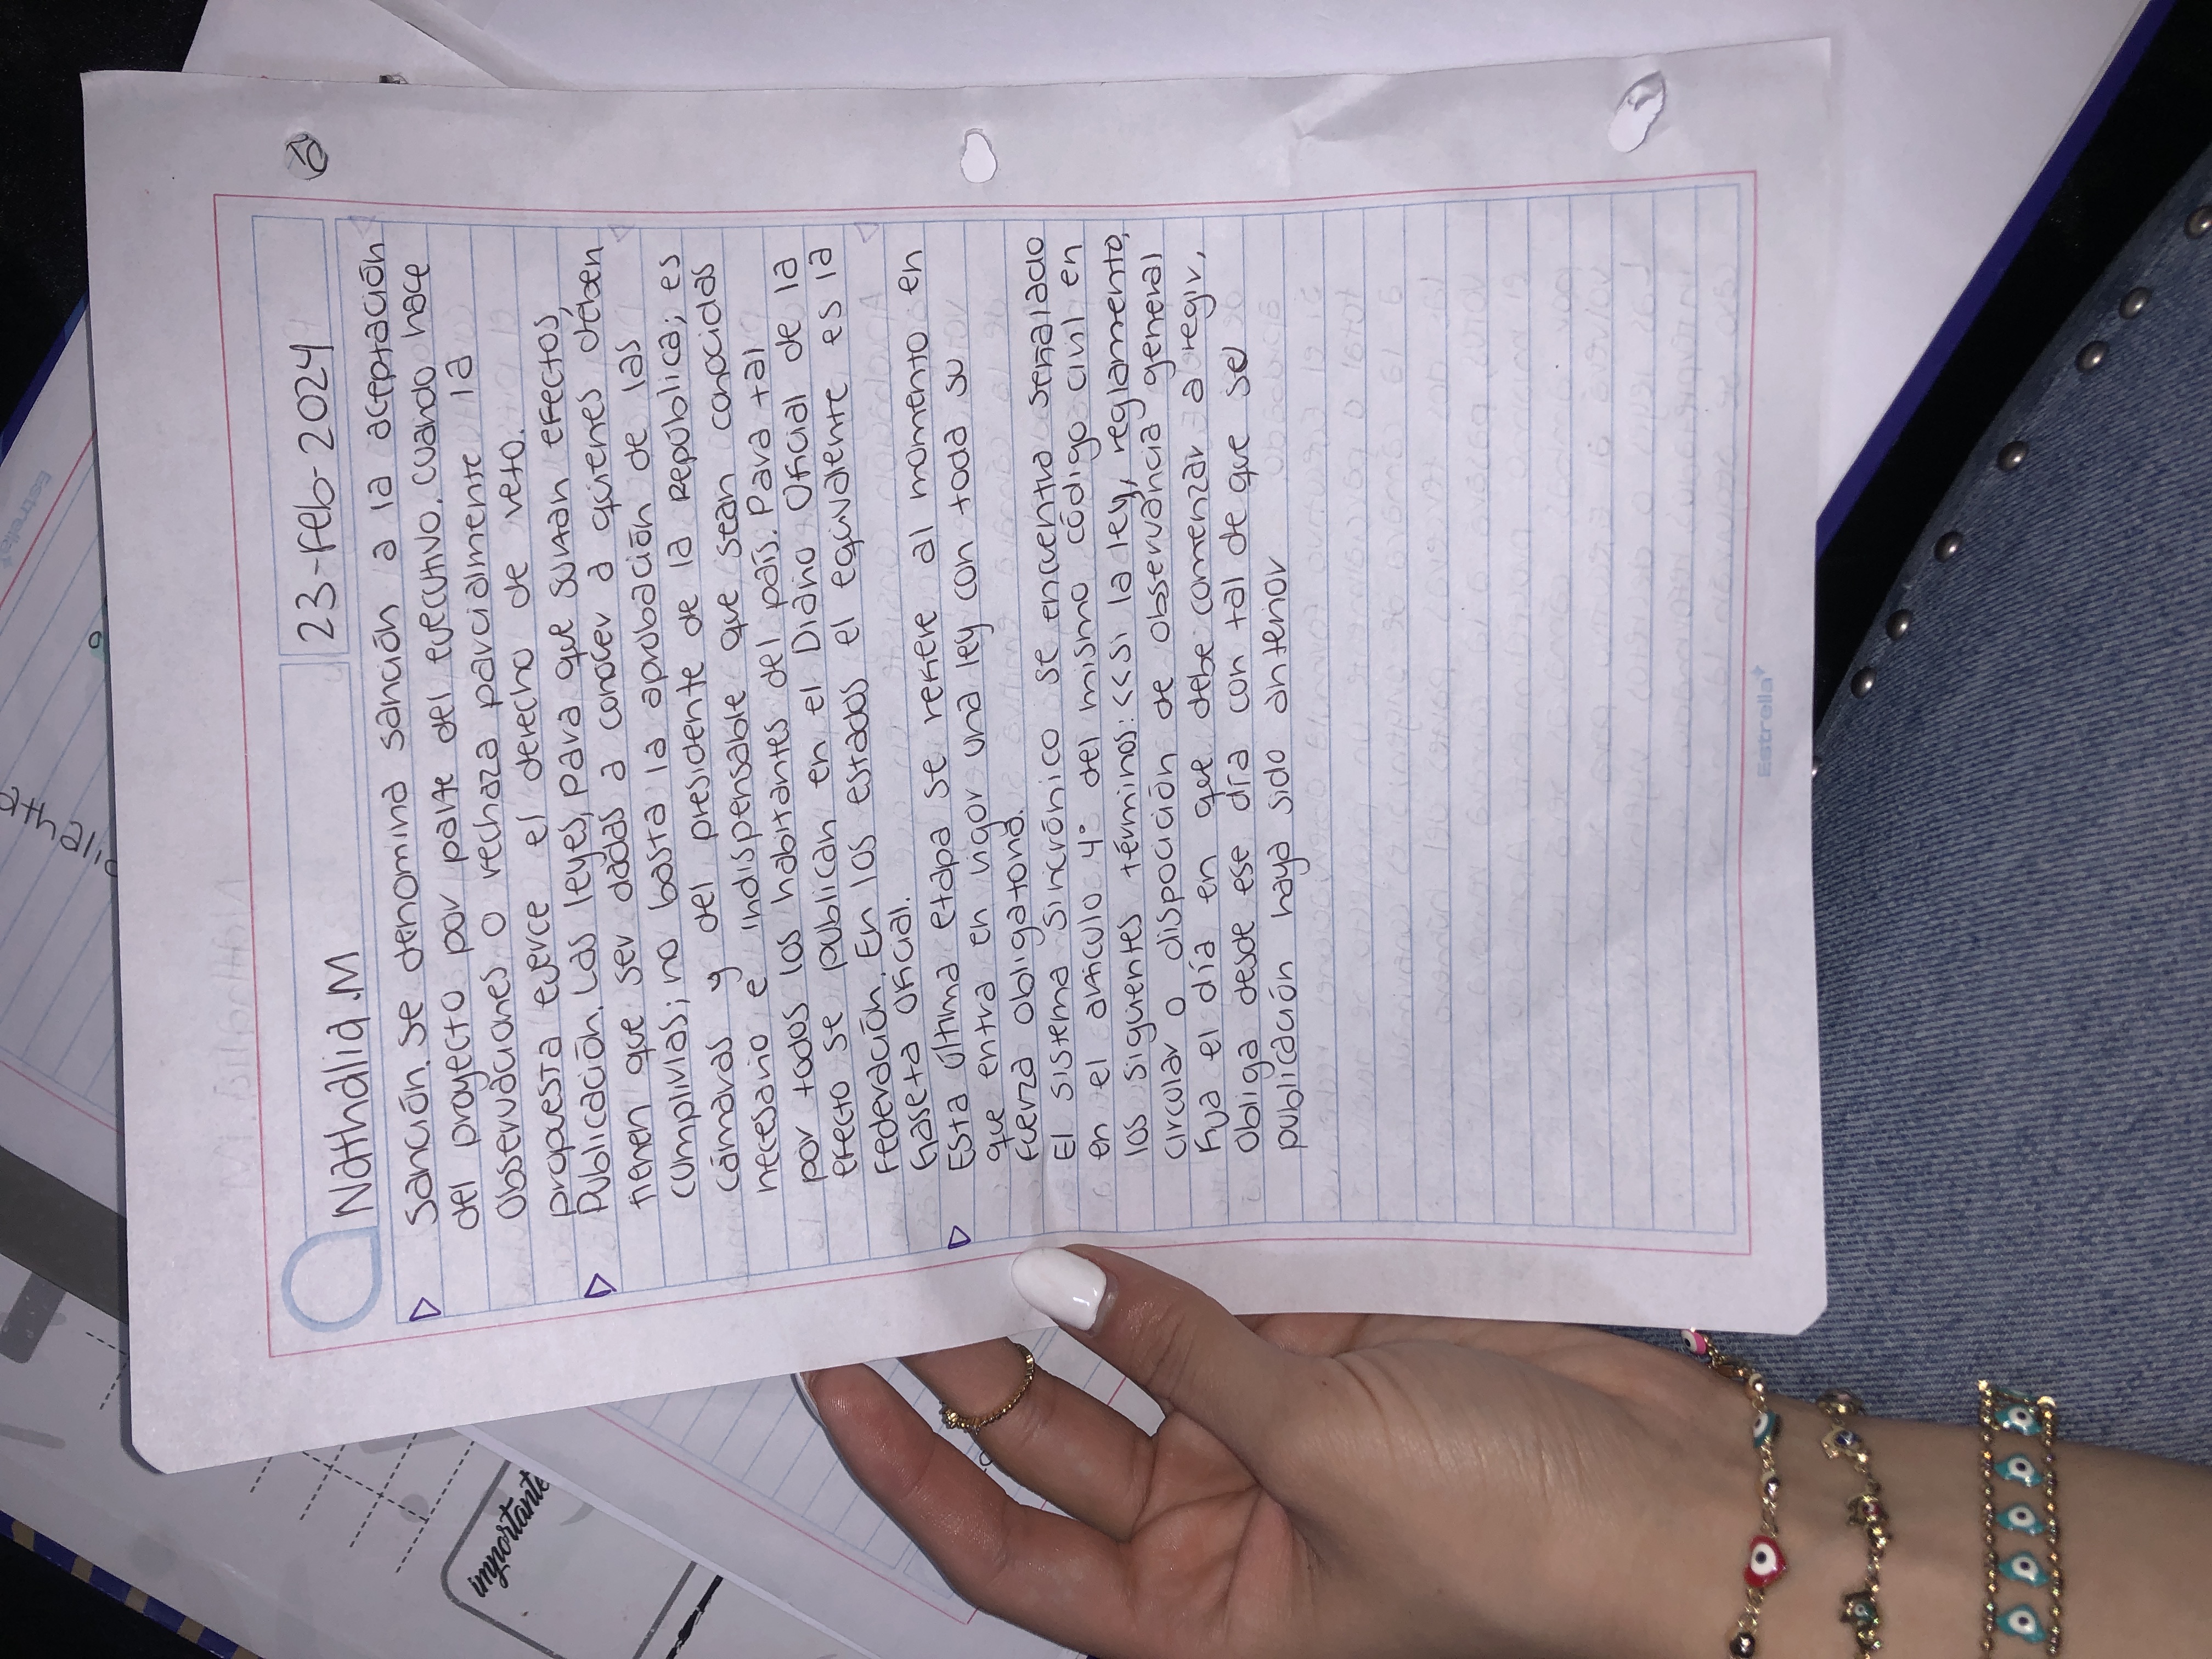 Nathalia.M
23-Feb-2024
Sanción. Se denomina sanción a la aceptación
del proyecto por parte del ejecutivo. cuando hace
observaciones o rechaza parcialmente la
propuesta ejerce el derecho de veto.
Publicación. Las leyes, para que surtan efectos,
tienen que ser dadas a conocer a quienes deben
cumplirlas; no basta la aprobación de las
cámaras y del presidente de la república; es
necesario e indispensable que sean conocidas
por todos los habitantes del país. Para tal
efecto se publican en el Diario Oficial de la
Federación. En los estados el equivalente es la
Gaseta Oficial.
Esta última etapa se refiere al momento en
que entra en vigor una ley con toda su
fuerza obligatoria.
El sistema sincrónico se encuentra señalado
en el artículo 4° del mismo código civil en
los siguientes términos: <<Si la ley, reglamento,
circular o disposición de observancia general
Fija el día en que debe comenzar a regir,
obliga desde ese día con tal de que se
publicación haya sido anterior
Estrella
Estrella
athalia
importante